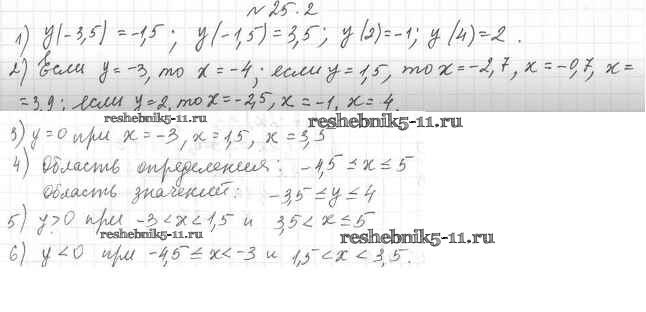 № 25.2
1) y(-3,5) = -1,5 ; y(-1,5) = 3,5; y(2) = -1; y(4) = 2 .
2) Если y = -3, то x = -4 ; если y = 1,5, то x = -2,7, x = -0,7, x =
= 3,9; если y = 2, то x = -2,5, x = -1, x = 4.
reshebnik5-11.ru
reshebnik5-11.ru
3) y = 0 при x = -3, x = 1,5, x = 3,5
4) Область определения: -4,5 ≤ x ≤ 5
область значений: -3,5 ≤ y ≤ 4
5) y > 0 при -3 < x < 1,5 и 3,5 < x ≤ 5
reshebnik5-11.ru
reshebnik5-11.ru
6) y < 0 при -4,5 ≤ x < -3 и 1,5 < x < 3,5.